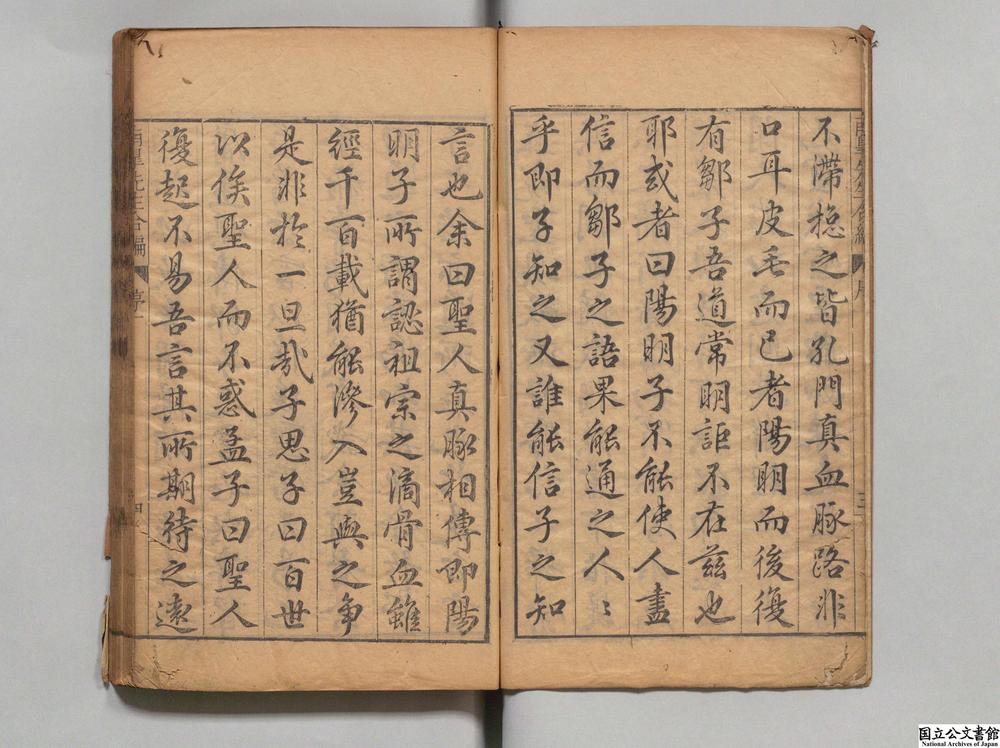 不滯捴之皆孔門真血脉路非
口耳皮毛而已者陽明而後復
有鄒子吾道常明詎不在茲也
耶或者曰陽明子不能使人盡
信而鄒子之語果能通之人〻
乎即子知之又誰能信子之知
言也余曰聖人真脉相傳即陽
明子所謂認祖宗之滴骨血雖
經千百載猶能滲入豈與之争
是非於一旦哉子思子曰百世
以俟聖人而不惑孟子曰聖人
復起不易吾言其所期待之遠
先生合編
国立公文書館
National Archives of Japan